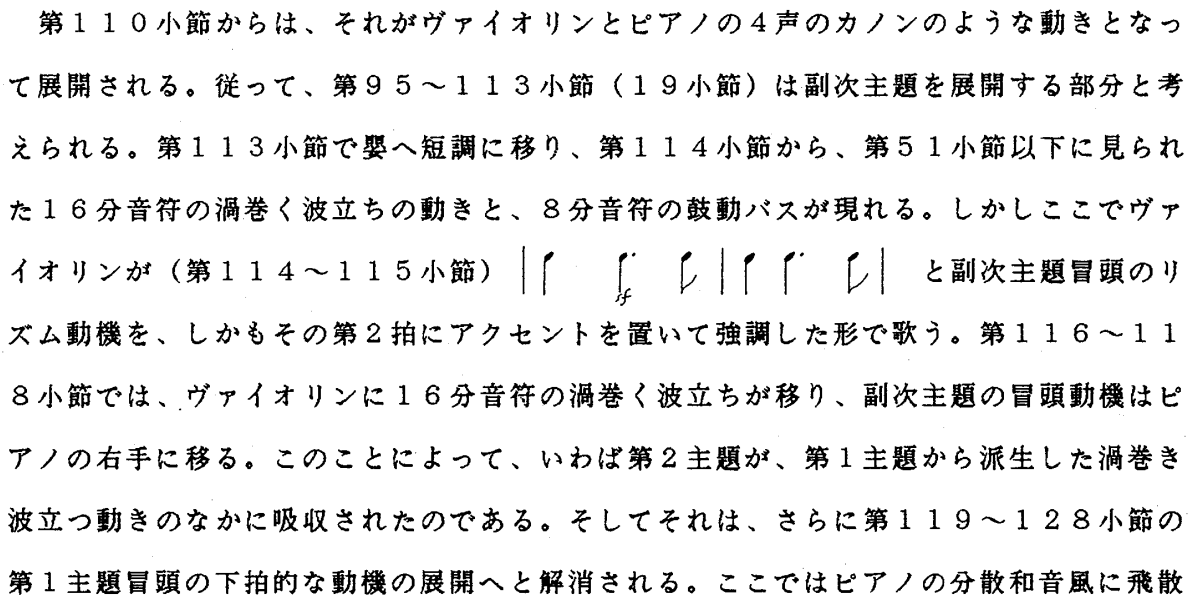 第１１０小節からは、それがヴァイオリンとピアノの４声のカノンのような動きとなっ
て展開される。従って、第９５～１１３小節（１９小節）は副次主題を展開する部分と考
えられる。第１１３小節で嬰へ短調に移り、第１１４小節から、第５１小節以下に見られ
た１６分音符の渦巻く波立ちの動きと、８分音符の鼓動バスが現れる。しかしここでヴァ
イオリンが（第１１４～１１５小節） sf と副次主題冒頭のリ
ズム動機を、しかもその第２拍にアクセントを置いて強調した形で歌う。第１１６～１１
８小節では、ヴァイオリンに１６分音符の渦巻く波立ちが移り、副次主題の冒頭動機はピ
アノの右手に移る。このことによって、いわば第２主題が、第１主題から派生した渦巻き
波立つ動きのなかに吸収されたのである。そしてそれは、さらに第１１９～１２８小節の
第１主題冒頭の下拍的な動機の展開へと解消される。ここではピアノの分散和音風に飛散